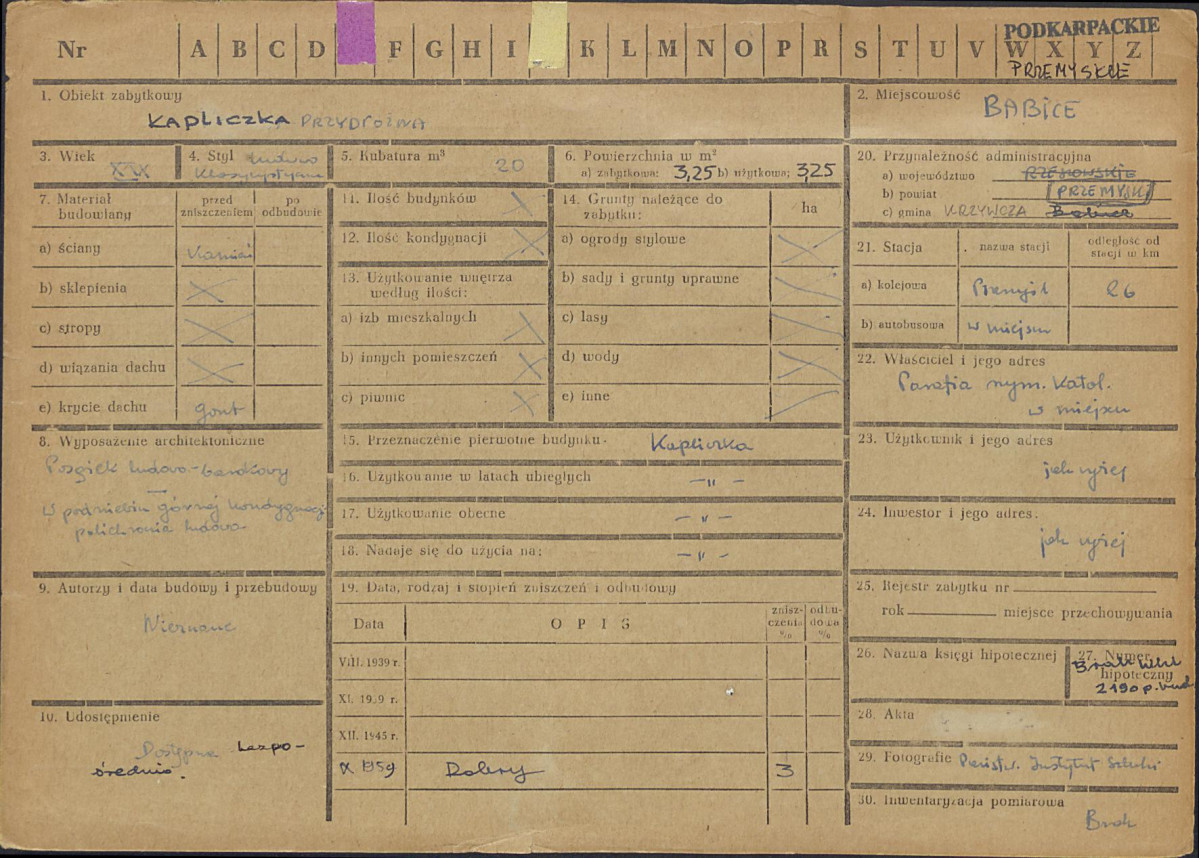 PODKARPACKIE
Nr A B C D F G H I K L M N O P R S T U V W X Y Z
PRZEMYSKIE
1. Obiekt zabytkowy
KAPLICZKA PRZYDROŻNA
2. Miejscowość
BABICE
3. Wiek
XIX
4. Styl ludowo
klasycystyczny
5. Kubatura m³
20
6. Powierzchnia w m²
a) zabytkowa: 3,25 b) użytkowa; 3,25
7. Materiał budowlany
przed zniszczeniem
po odbudowie
a) ściany
kamień
b) sklepienia
c) stropy
d) wiązania dachu
e) krycie dachu
gont
8. Wyposażenie architektoniczne
Posążek ludowo-barokowy
w podniebiu górnej kondygnacji
polichromia ludowa
9. Autorzy i data budowy i przebudowy
Nieznane
10. Udostępnienie
Dostępna bezpo-
średnio.
11. Ilość budynków
12. Ilość kondygnacji
13. Użytkowanie wnętrza
według ilości:
a) izb mieszkalnych
b) innych pomieszczeń
c) piwnic
14. Grunty należące do
zabytku:
ha
a) ogrody stylowe
b) sady i grunty uprawne
c) lasy
d) wody
e) inne
15. Przeznaczenie pierwotne budynku. Kapliczka
16. Użytkowanie w latach ubiegłych – " –
17. Użytkowanie obecne – " –
18. Nadaje się do użycia na: – " –
19. Data, rodzaj i stopień zniszczeń i odbudowy
Data
OPIS
zniszczenia %
odbudowa %
VIII. 1939 r.
XI. 1939 r.
XII. 1945 r.
X 1959 Dobry 3
20. Przynależność administracyjna
a) województwo RZESZOWSKIE
b) powiat PRZEMYSKI
c) gmina KRZYWCZA Babice
21. Stacja
nazwa stacji
odległość od
stacji w km
a) kolejowa Przemyśl 26
b) autobusowa w miejscu
22. Właściciel i jego adres
Parafia rzym. katol.
w miejscu
23. Użytkownik i jego adres
jak wyżej
24. Inwestor i jego adres:
jak wyżej
25. Rejestr zabytku nr
rok miejsce przechowywania
26. Nazwa księgi hipotecznej
27. Numer
hipoteczny
2190 p. bud
28. Akta
29. Fotografie Państw. Instytut Sztuki
30. Inwentaryzacja pomiarowa
Brak